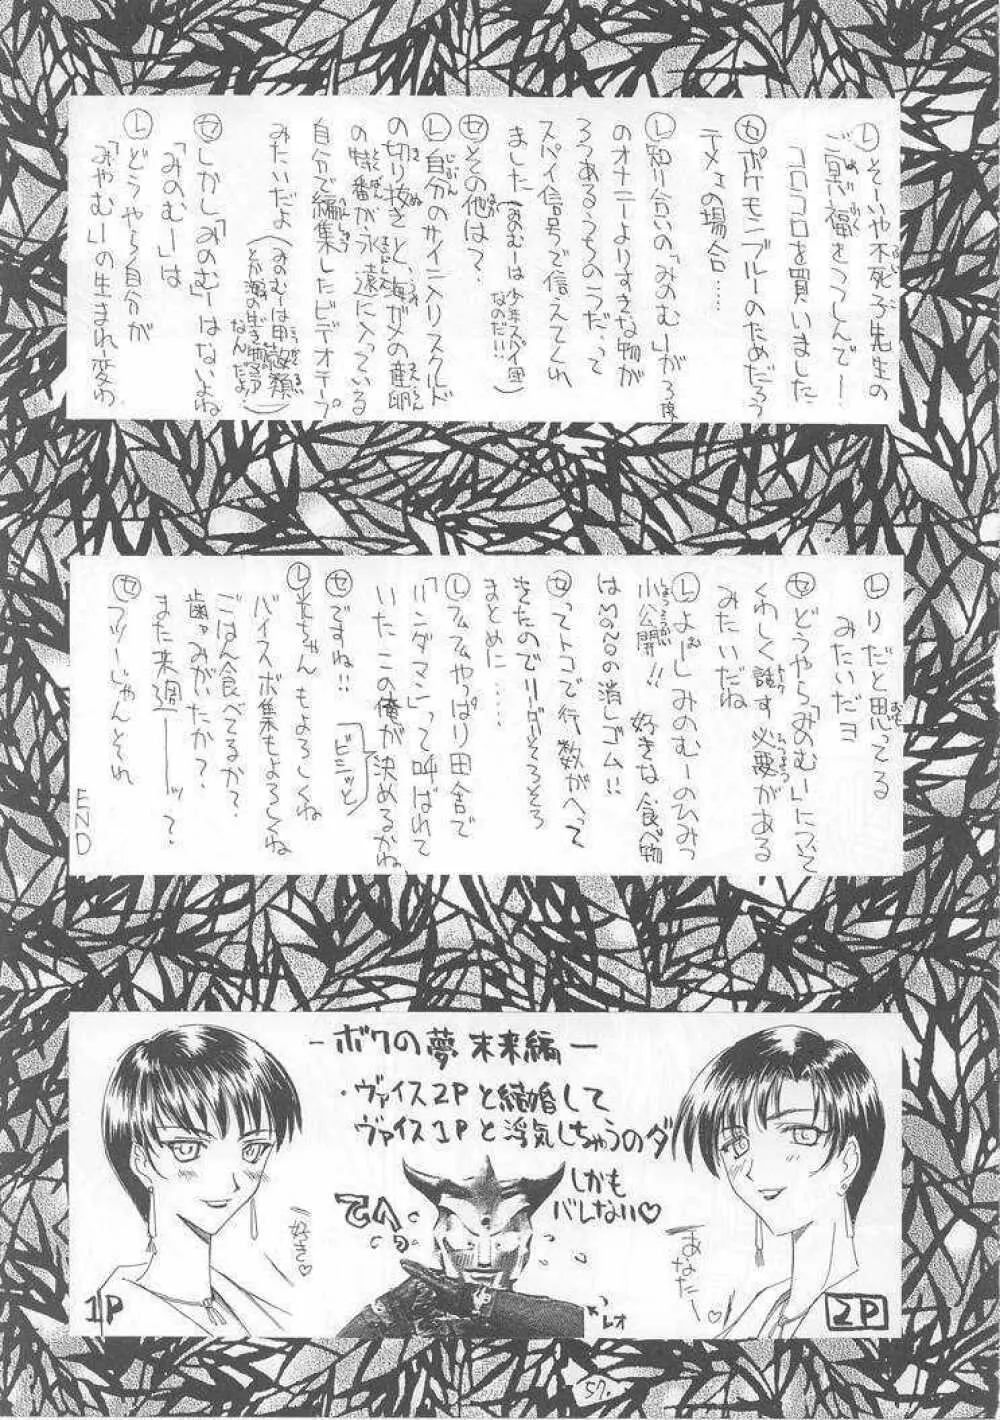 Ⓛそーいや不死子先生の
ご冥福をつつしんでー
コロコロを買いました
㋝ポケモンブルーのためだろう
テメェの場合……
Ⓛ知り合いの「みのむー」が3度
のオナニーよりすきな物が
3つあるうちの1つだ、って
スパイ信号で信えてくれ
ました(みのむーは少年スパイ団
なのだ!!)
㋝その他は?
Ⓛ自分のサイン入リスクルド
の切り抜きと、海ガメの産卵
の特番が永遠に入っている
自分で編集したビデオテープ
みたいだよ(みのむーは甲殻類
とか海の生き物マニア
なんだよ)
㋝しかし「みのむー」はないよね
「みのむー」は
Ⓛどうやら自分が
「みやむー」の生まれ変わ
Ⓛりだと思ってる
みたいだヨ
㋝どうやら「みのむー」について
くわしく話す必要がある
みたいだね
Ⓛよーし みのむーのひみつ
小公開!! 好きな食べ物
はMONOの消しゴム!!
㋝ってトコで行数がへって
きたのでリーダーそろそろ
まとめに……
Ⓛフムフムやっぱり田舎で
「ハンダマン」って呼ばれて
いたこの俺が決めるかね
㋝ですね!!
ビシッと
Ⓛそんちゃんもよろしくね
バイスボ集もよろしくね
ごはん食べてるか?
歯みがいたか?
また来週ーーーッ?
㋝フツーじゃんそれ
END
-ボクの夢 未来編-
・ヴァイス2Pと結婚して
ヴァイス1Pと浮気しちゃうのダ
しかも
バレない♡
てへっ
好き♡
あなたー♡
1P
レオ
2P
57.